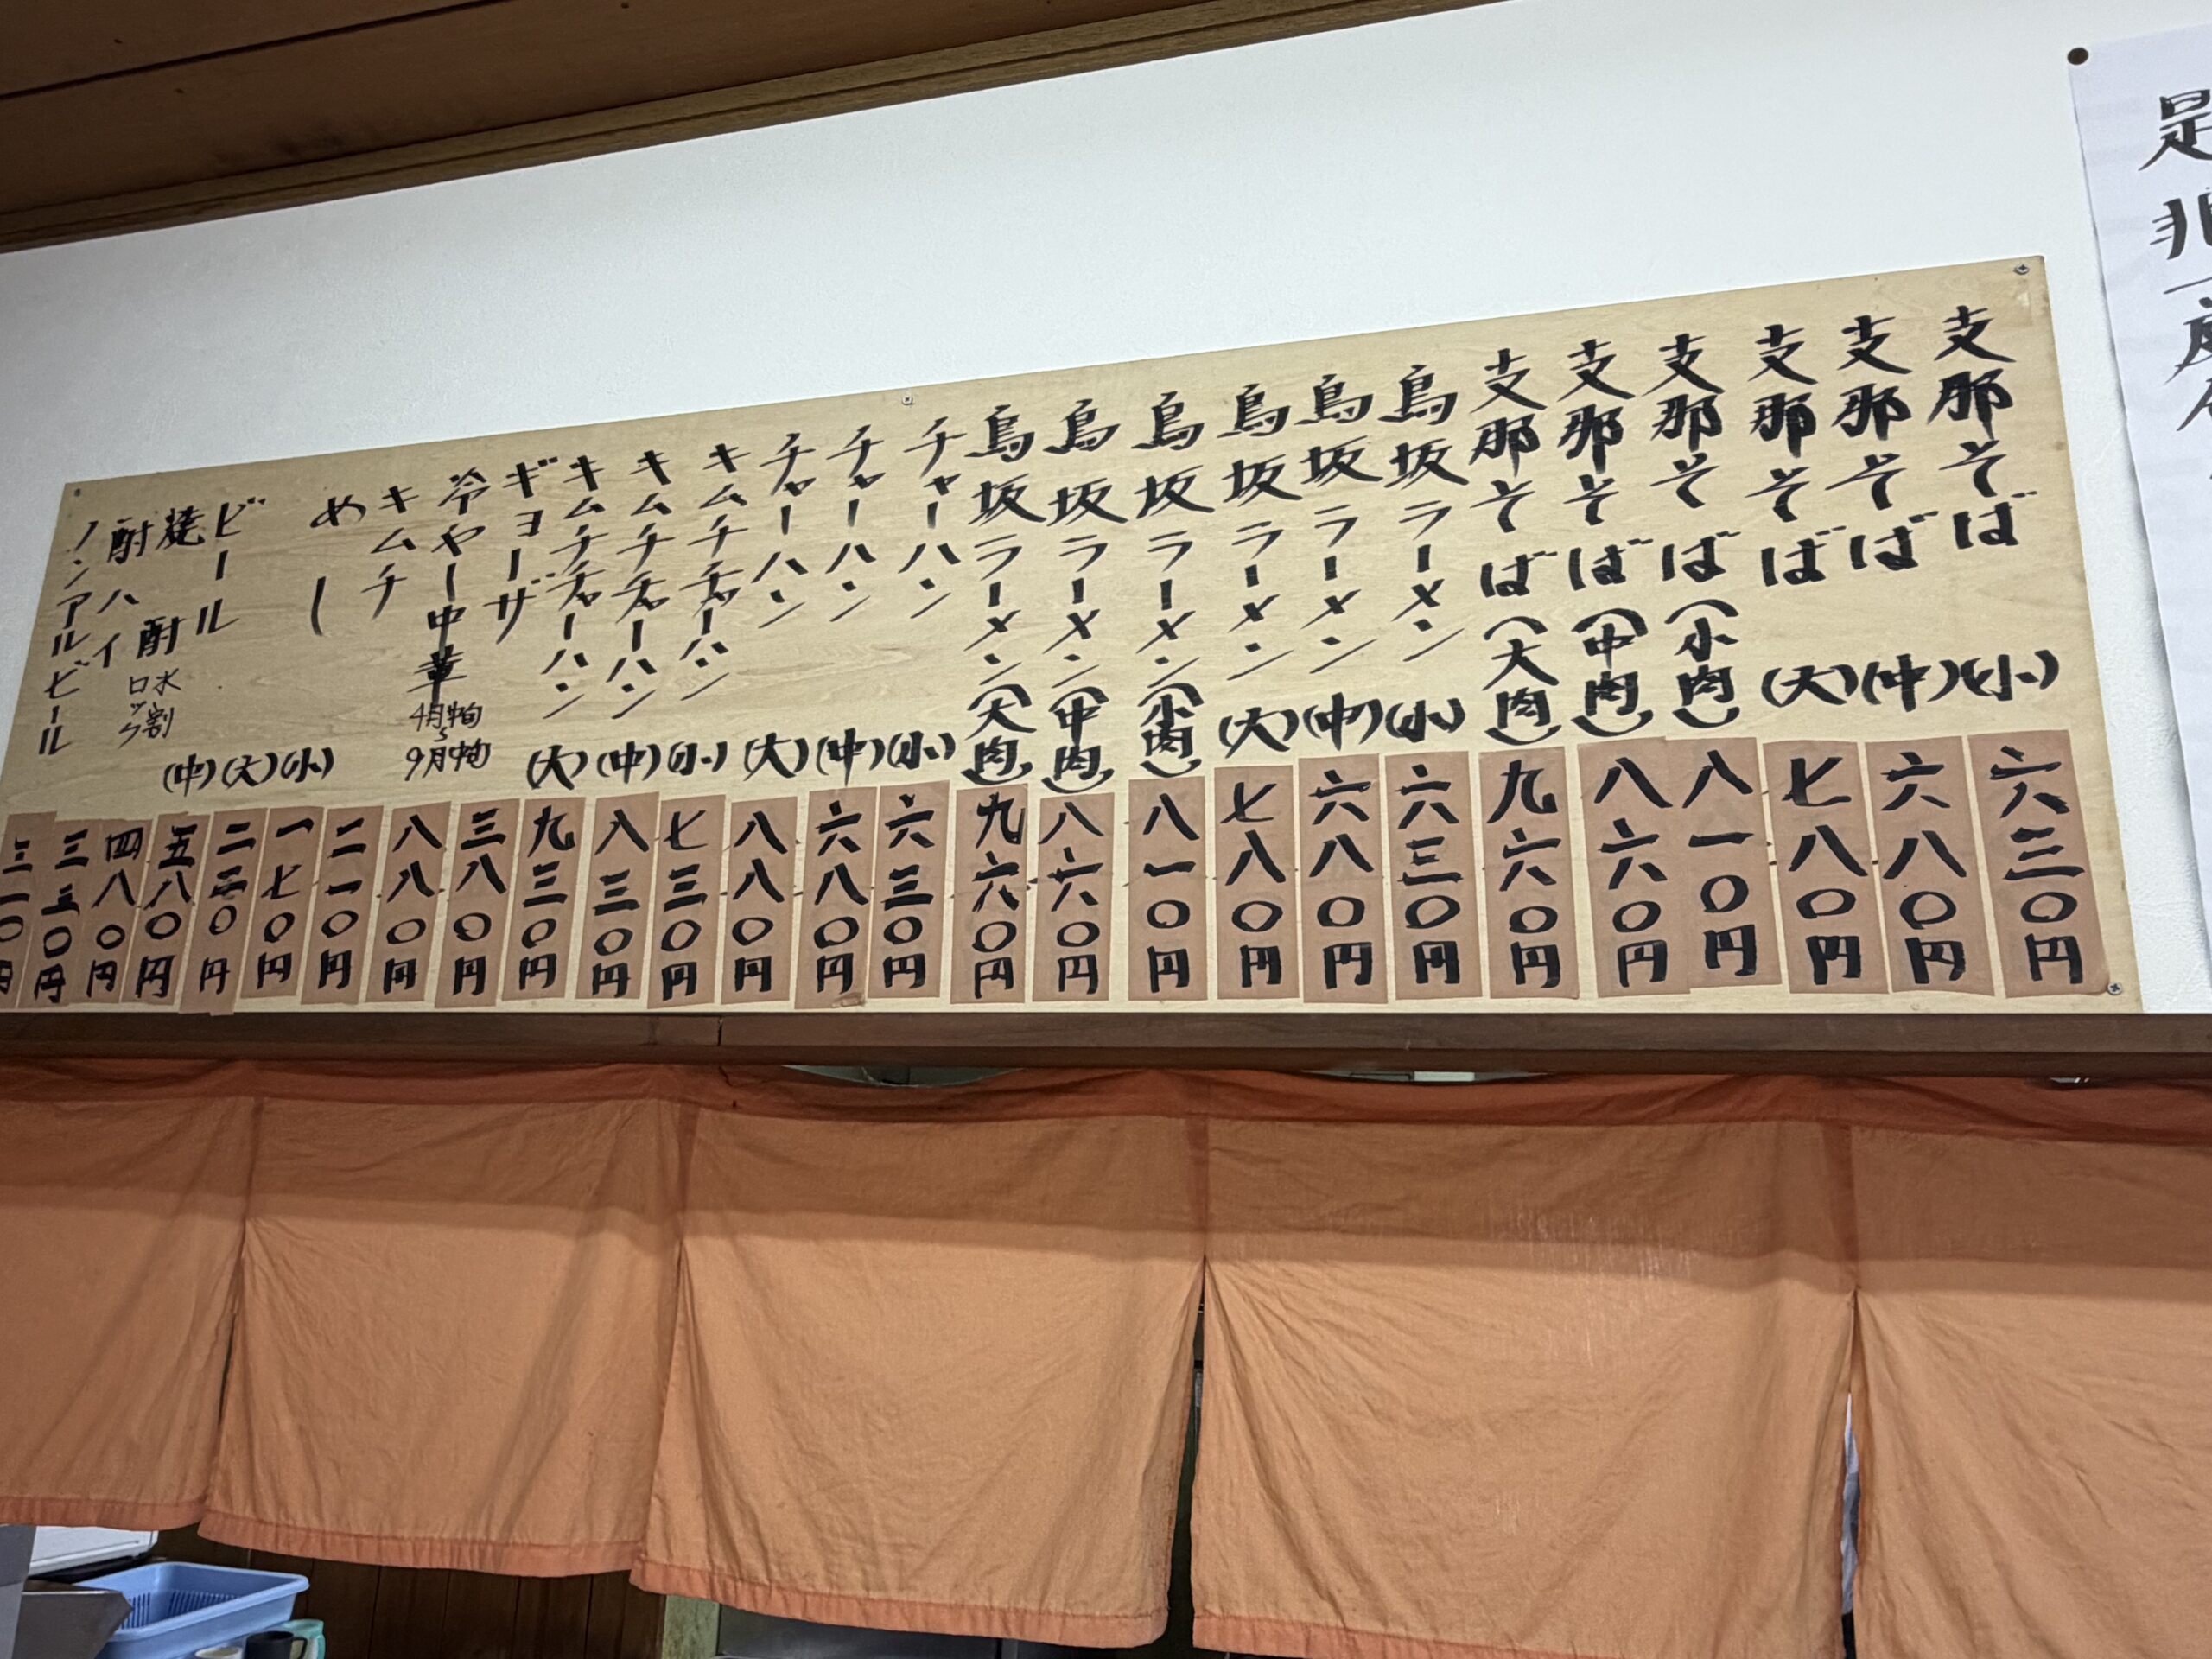 是非一度
支那そば(小) 六三〇円
支那そば(中) 六八〇円
支那そば(大) 七八〇円
支那そば(小肉) 八一〇円
支那そば(中肉) 八六〇円
支那そば(大肉) 九六〇円
鳥坂ラーメン(小) 六三〇円
鳥坂ラーメン(中) 六八〇円
鳥坂ラーメン(大) 七八〇円
鳥坂ラーメン(小肉) 八一〇円
鳥坂ラーメン(中肉) 八六〇円
鳥坂ラーメン(大肉) 九六〇円
チャーハン(小) 六三〇円
チャーハン(中) 六八〇円
チャーハン(大) 八八〇円
キムチチャーハン(小) 七三〇円
キムチチャーハン(中) 八三〇円
キムチチャーハン(大) 九三〇円
ギョーザ 三八〇円
冷ヤー中華 4月中旬〜9月中旬 八八〇円
キムチ 二一〇円
めし (小) 一七〇円
(大) 二三〇円
ビール (中) 五八〇円
焼酎 水割 ロック 四八〇円
酎ハイ 三三〇円
ノンアルビール 三一〇円